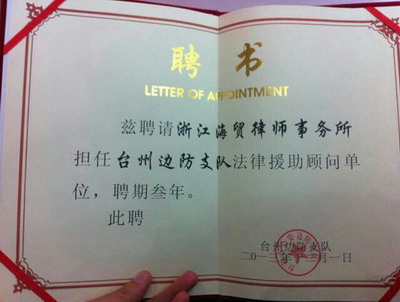 聘书
LETTER OF APPOINTMENT
兹聘请浙江海贸律师事务所
担任台州边防支队法律援助顾问单
位，聘期叁年。
此聘
台州边防支队
二〇一三年 月一日